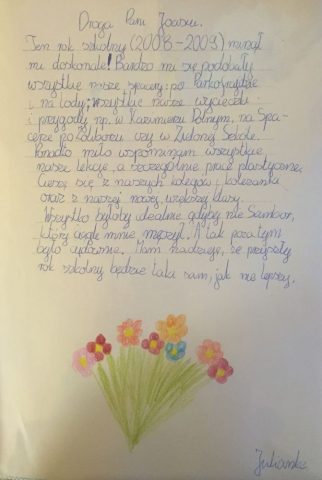 Droga Pani Joasiu.
Ten rok szkolny (2008-2009) minął
mi doskonale! Bardzo mi się podobały
wszystkie nasze sprawy: po
i na lody; wszystkie nasze wycieczki
i przygody np. w Kazimierzu Dolnym, na Spa-
cerze po Żoliborzu czy w Zielonej Szkole.
Ponadto miło wspominam wszystkie
nasze lekcje, a szczególnie prace plastyczne.
Cieszę się z naszych kolegów i koleżanek
oraz z naszej nowej, większej klasy.
Wszystko byłoby idealne gdyby nie Sambor,
który ciągle mnie męczył. A tak poza tym
było cudownie. Mam nadzieję, że przyszły
rok szkolny będzie taki sam, jak nie lepszy.
Julianka